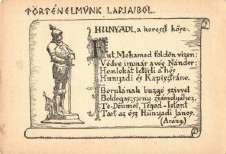 TÖRTÉNELMÜNK LAPJAIBÓL.
HUNYADI, a kereszt hőse.
Fut Mohamed földön vízen;
Védve immár avie Nándor;
Homlokát letörli a hős
Hunyadi és Kapisztrán.
Borulának buzgó szivvel
Boldogasszony zsámolyához,
Te-Deumot, Téged-Istent
Tart az ősz Hunyadi János.
(Arany)